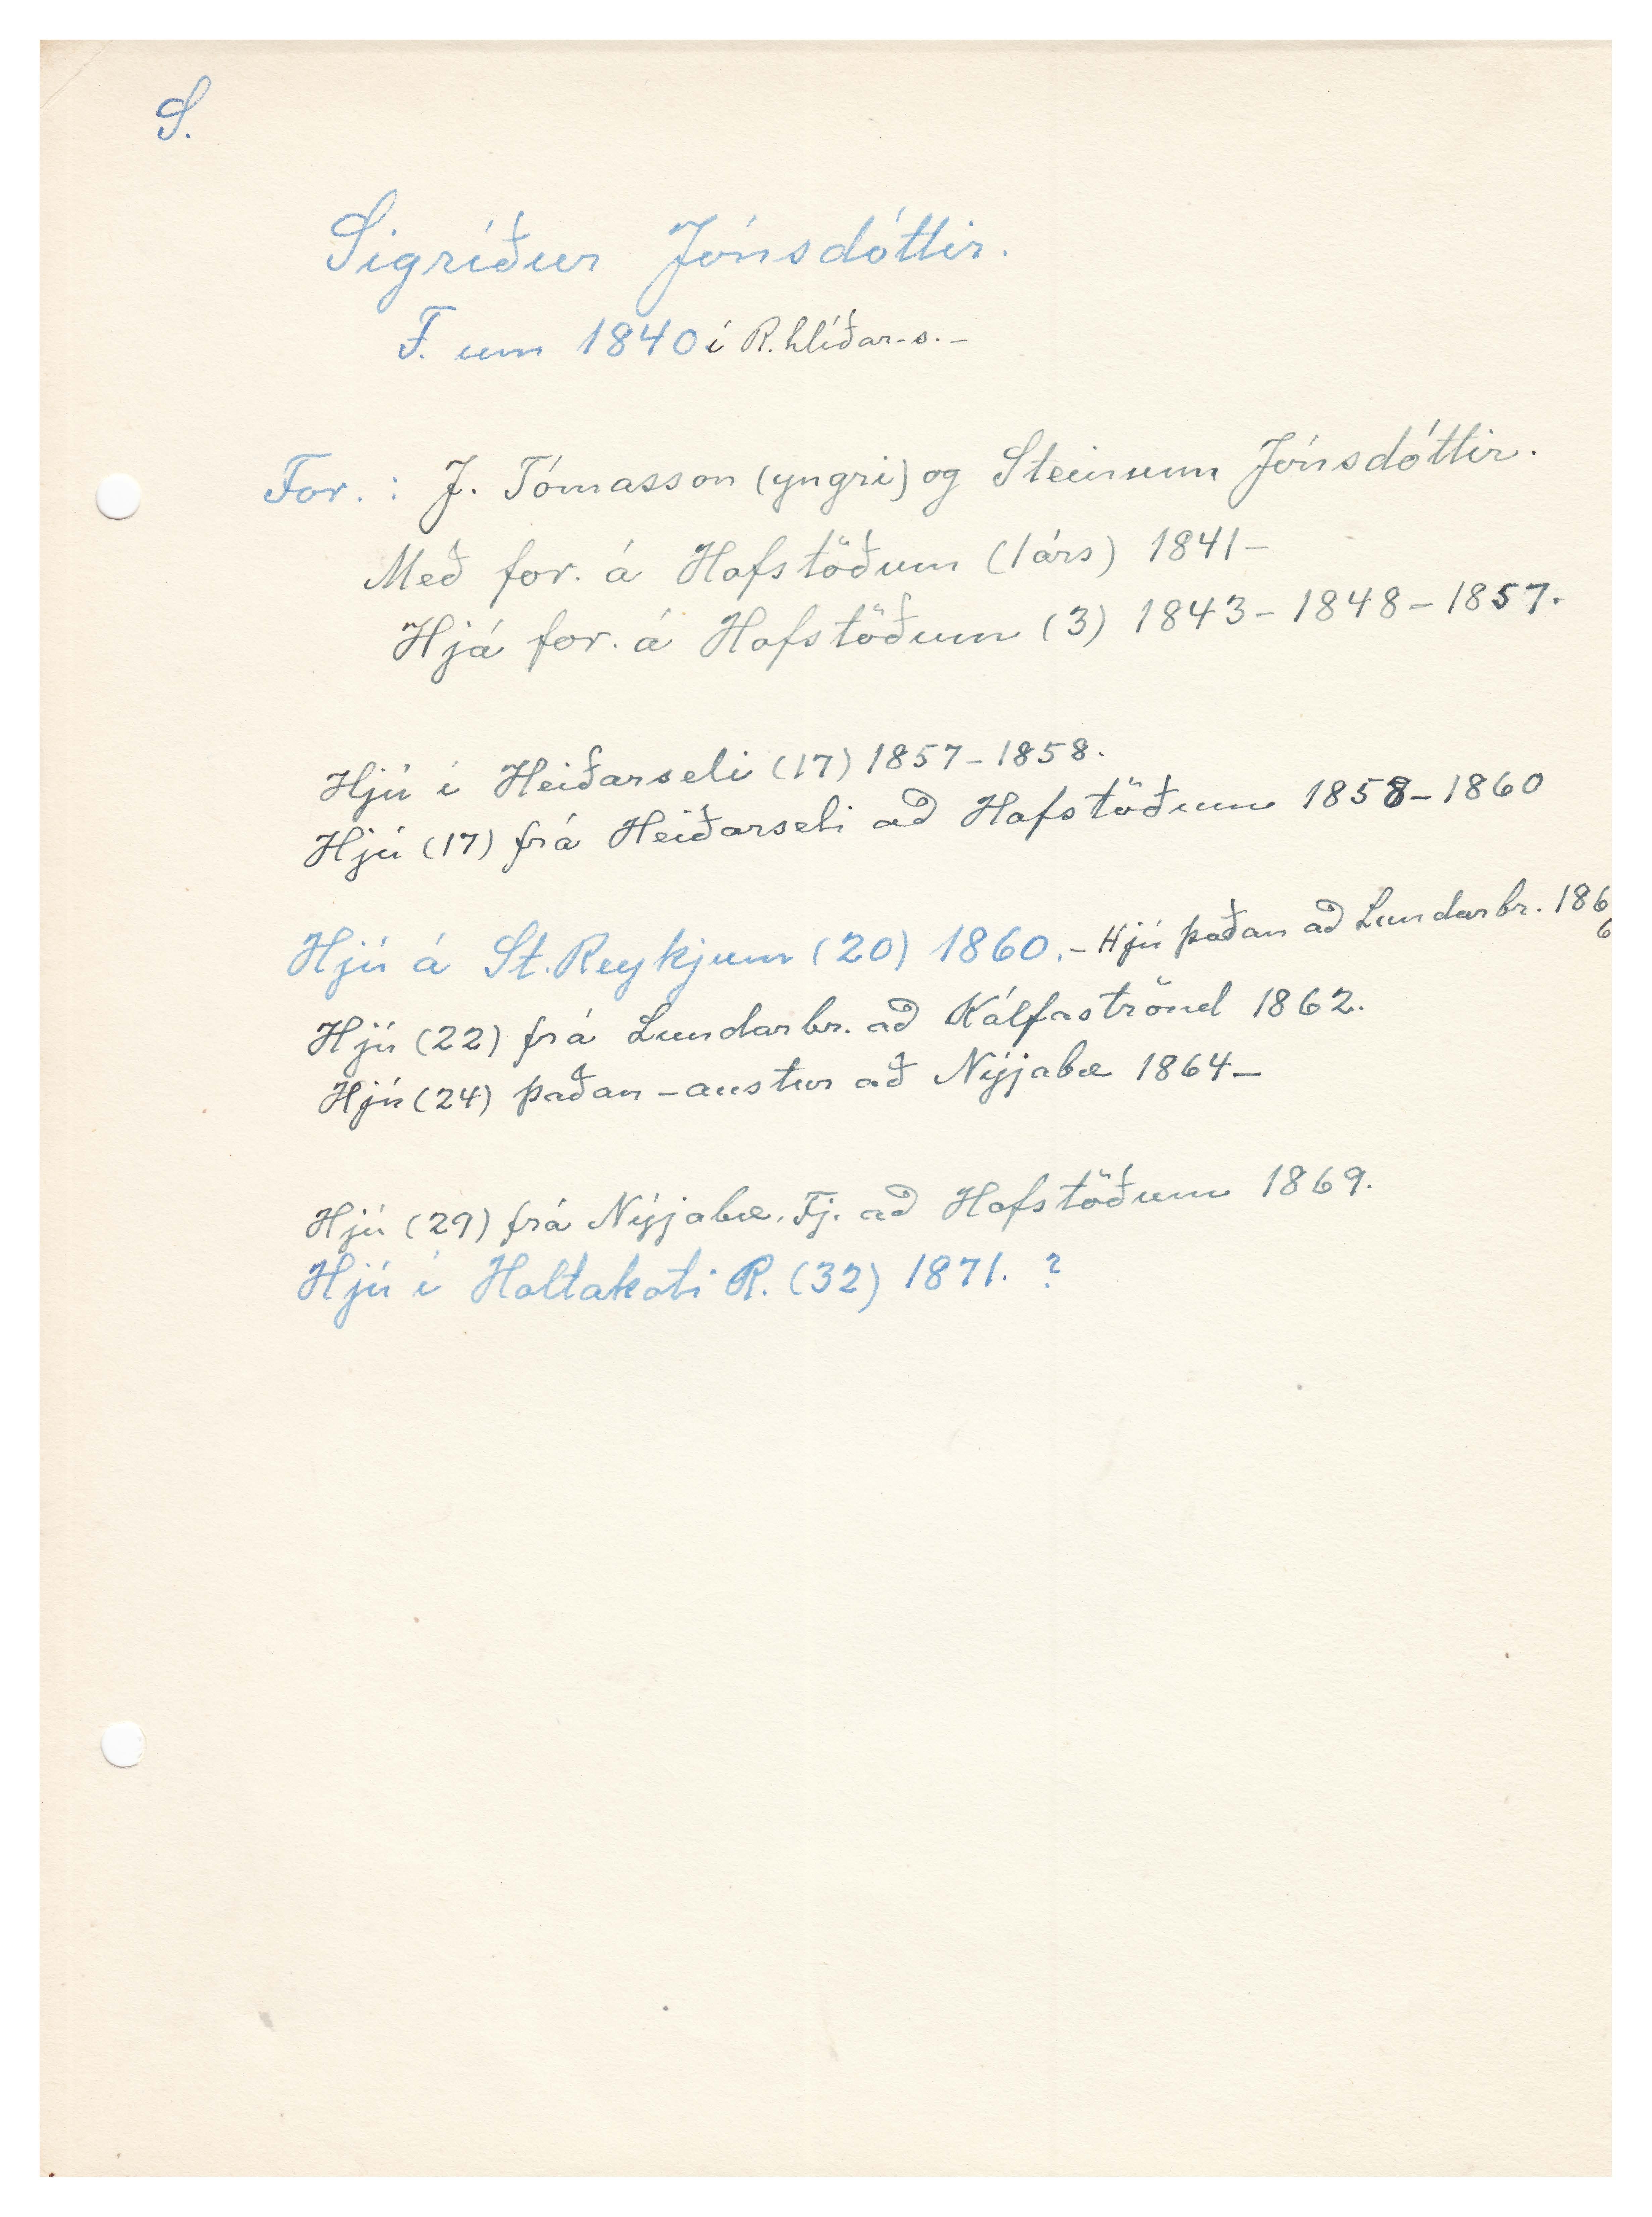 S.
Sigríður Jónsdóttir.
F. um 1840 í R.hlíðar-s. -
For. : J. Tómasson (yngri) og Steinunn Jónsdóttir.
Með for. á Hofstöðum (1árs) 1841-
Hjá for. á Hofstöðum (3) 1843 - 1848 - 1857.
Hjú í Heiðarseli (17) 1857 - 1858.
Hjú (17) frá Heiðarseli að Hofstöðum 1858 - 1860
Hjú á St. Reykjum (20) 1860. - Hjú þaðan að Lundarbr. 186
Hjú (22) frá Lundarbr. að Kálfaströnd 1862.
Hjú (24) þaðan - austur að Nýjabæ 1864 -
Hjú (29) frá Nýjabæ, Fj. að Hofstöðum 1869.
Hjú í Holtakoti R. (32) 1871. ?